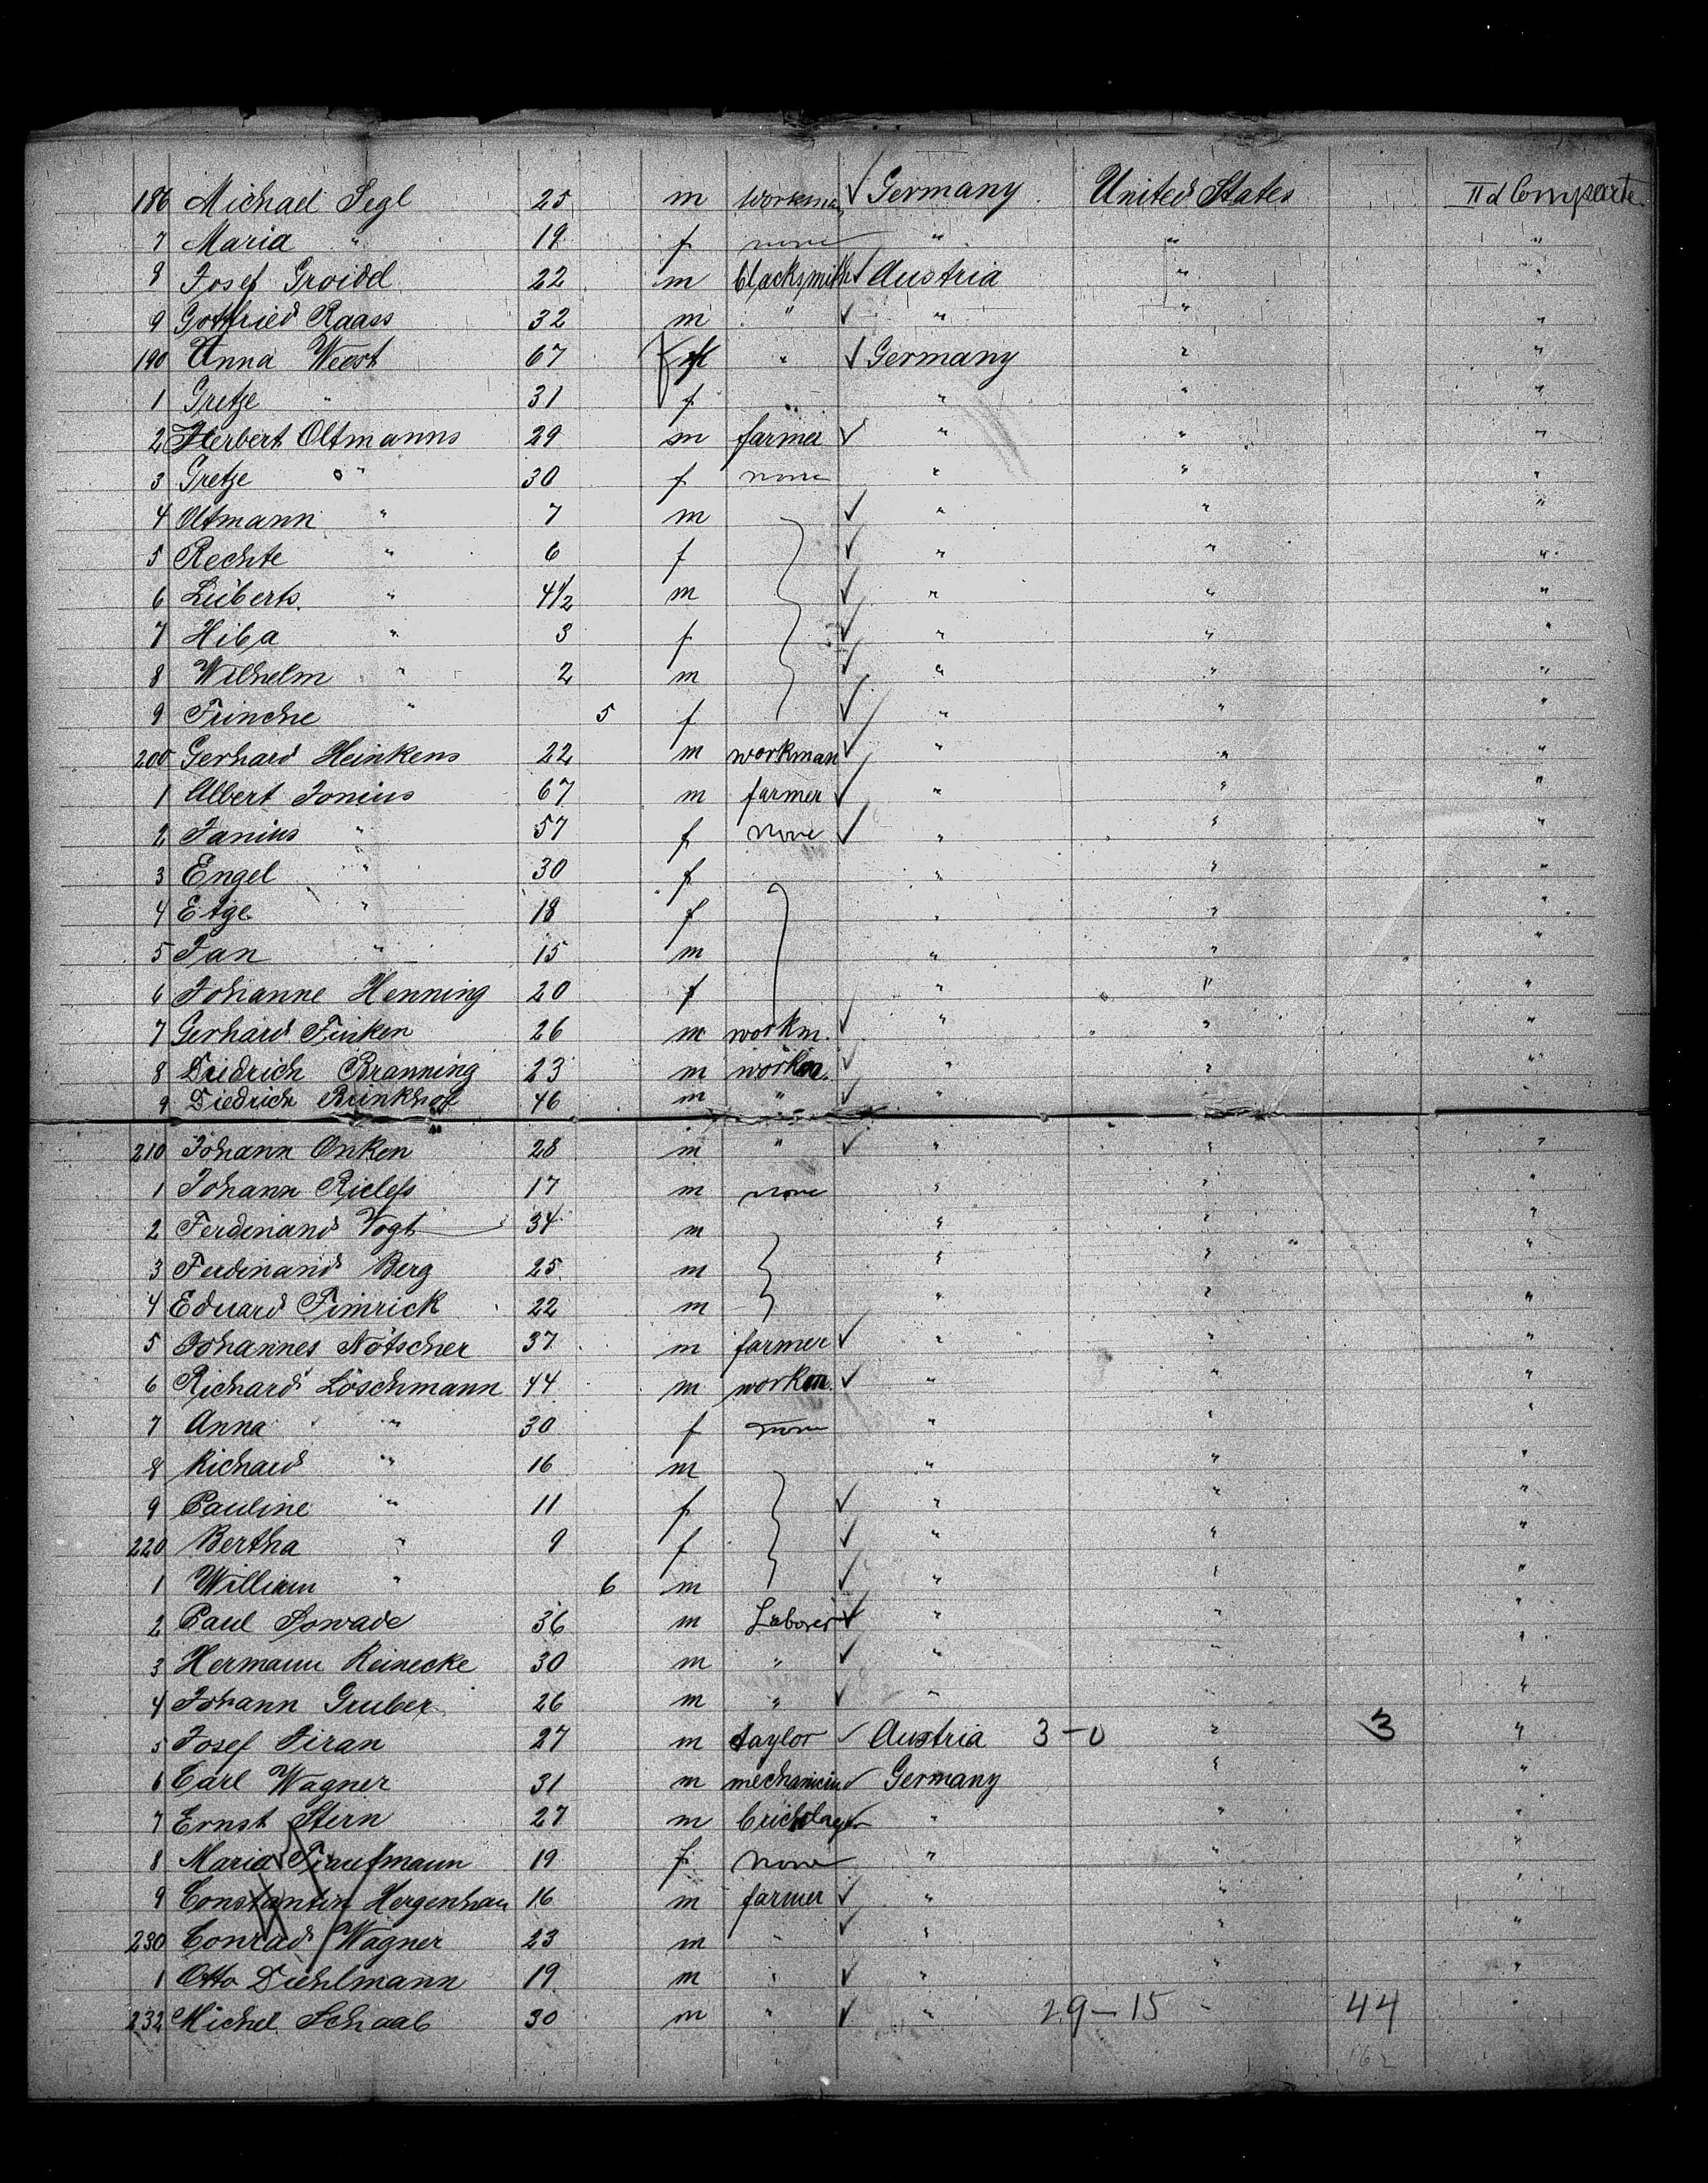 186 Michael Segl 25 m workman ✓ Germany United States II d Comparte.
7 Maria " 19 f none " " "
8 Josef Groidl 22 m blacksmith ✓ Austria " "
9 Gottfried Raass 32 m " ✓ " " "
190 Anna Weert 67 f " ✓ Germany " "
1 Gretje " 31 f " " " "
2 Herbert Oltmanns 29 m farmer ✓ " " "
3 Gretje " 30 f none " " "
4 Oltmann " 7 m ✓ " " "
5 Rechte " 6 f ✓ " " "
6 Lüberts " 4 1/2 m ✓ " " "
7 Hiba " 3 f ✓ " " "
8 Wilhelm " 2 m ✓ " " "
9 Trinche " 5 f ✓ " " "
200 Gerhard Heinkens 22 m workman ✓ " " "
1 Albert Jonius 67 m farmer ✓ " " "
2 Janius " 57 f none ✓ " " "
3 Engel " 30 f " " "
4 Etge " 18 f " " "
5 Jan " 15 m " " "
6 Johanne Henning 20 f " " "
7 Gerhard Finken 26 m workm. ✓ " " "
8 Diedrich Branning 23 m workm. ✓ " " "
9 Diedrich Brinkhof 46 m " ✓ " " "
210 Johann Onken 28 m " ✓ " " "
1 Johann Riclefs 17 m none " " "
2 Ferdinand Vogt 34 m " " "
3 Ferdinand Berg 25 m " " "
4 Eduard Timrick 22 m " " "
5 Johannes Nötscher 37 m farmer ✓ " " "
6 Richard Löschmann 44 m workm. ✓ " " "
7 Anna " 30 f none " " "
8 Richard " 16 m " " "
9 Pauline " 11 f ✓ " " "
220 Bertha " 9 f ✓ " " "
1 William " 6 m ✓ " " "
2 Paul Sowade 36 m Laborer ✓ " " "
3 Hermann Reinecke 30 m " ✓ " " "
4 Johann Gruber 26 m " ✓ " " "
5 Josef Jiran 27 m taylor ✓ Austria 3-0 " 3 "
6 Carl Wagner 31 m mechanician ✓ Germany " "
7 Ernst Stern 27 m bricklayer ✓ " " "
8 Maria 19 f none " " "
9 Constantin Hergenhan 16 m farmer ✓ " " "
230 Conrad Wagner 23 m " ✓ " " "
1 Otto Diehlmann 19 m " ✓ " " "
232 Michel Schaab 30 m " ✓ " 29-15 " 44 "
162